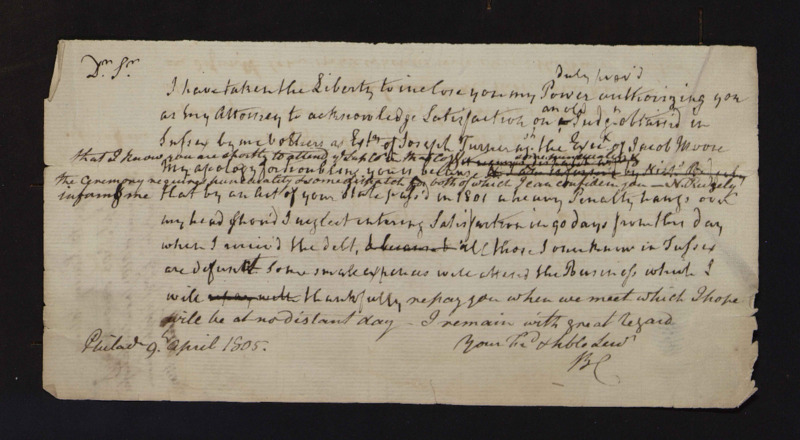 Dr. Sr.
Duly prov'd
I have taken the Liberty to inclose you my Power authorizing you
an old
as my Attorney to acknowledge Satisfaction on a Judgt. obtained in
Sussex by me & others as Exrs. of Joseph Turner agt. the Exrx. of Jacob Moore
that I know you are shortly to attend ye Supr. Co. in that Co.
My apology for troubling you is because
the Ceremony requires punctuality & some dispatch for both of which I can confide in you — N. Ridgely
informs me that by an Act of your State pass'd in 1801 a heavy Penalty hangs over
my head shou'd I neglect entering Satisfaction in 90 days from this day
when I receiv'd the debt, & because all those I once knew in Sussex
are defunct Some small expences will attend the Business which I
will repay with thankfully repay you when we meet which I hope
will be at no distant day — I remain with great Regard
Philada. 9. April 1805.
Your Fd. & hble Servt.
BC